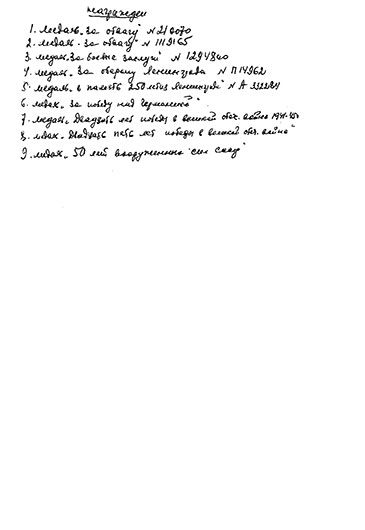 Награжден
1. медаль „За отвагу" N 216070
2. медаль „За отвагу" N 1119165
3. медаль „За боевые заслуги" N 1294840
4. медаль „За оборону Ленинграда N П14962
5. медаль „в память 250 летия Ленинграда" N А 332284
6. медаль „За победу над Германией"
7. медаль „Двадцать лет победы в великой отеч. войне 1941-45г
8. медаль „Тридцать лет победы в великой отеч. войне"
9. медаль „50 лет вооруженных сил СССР"